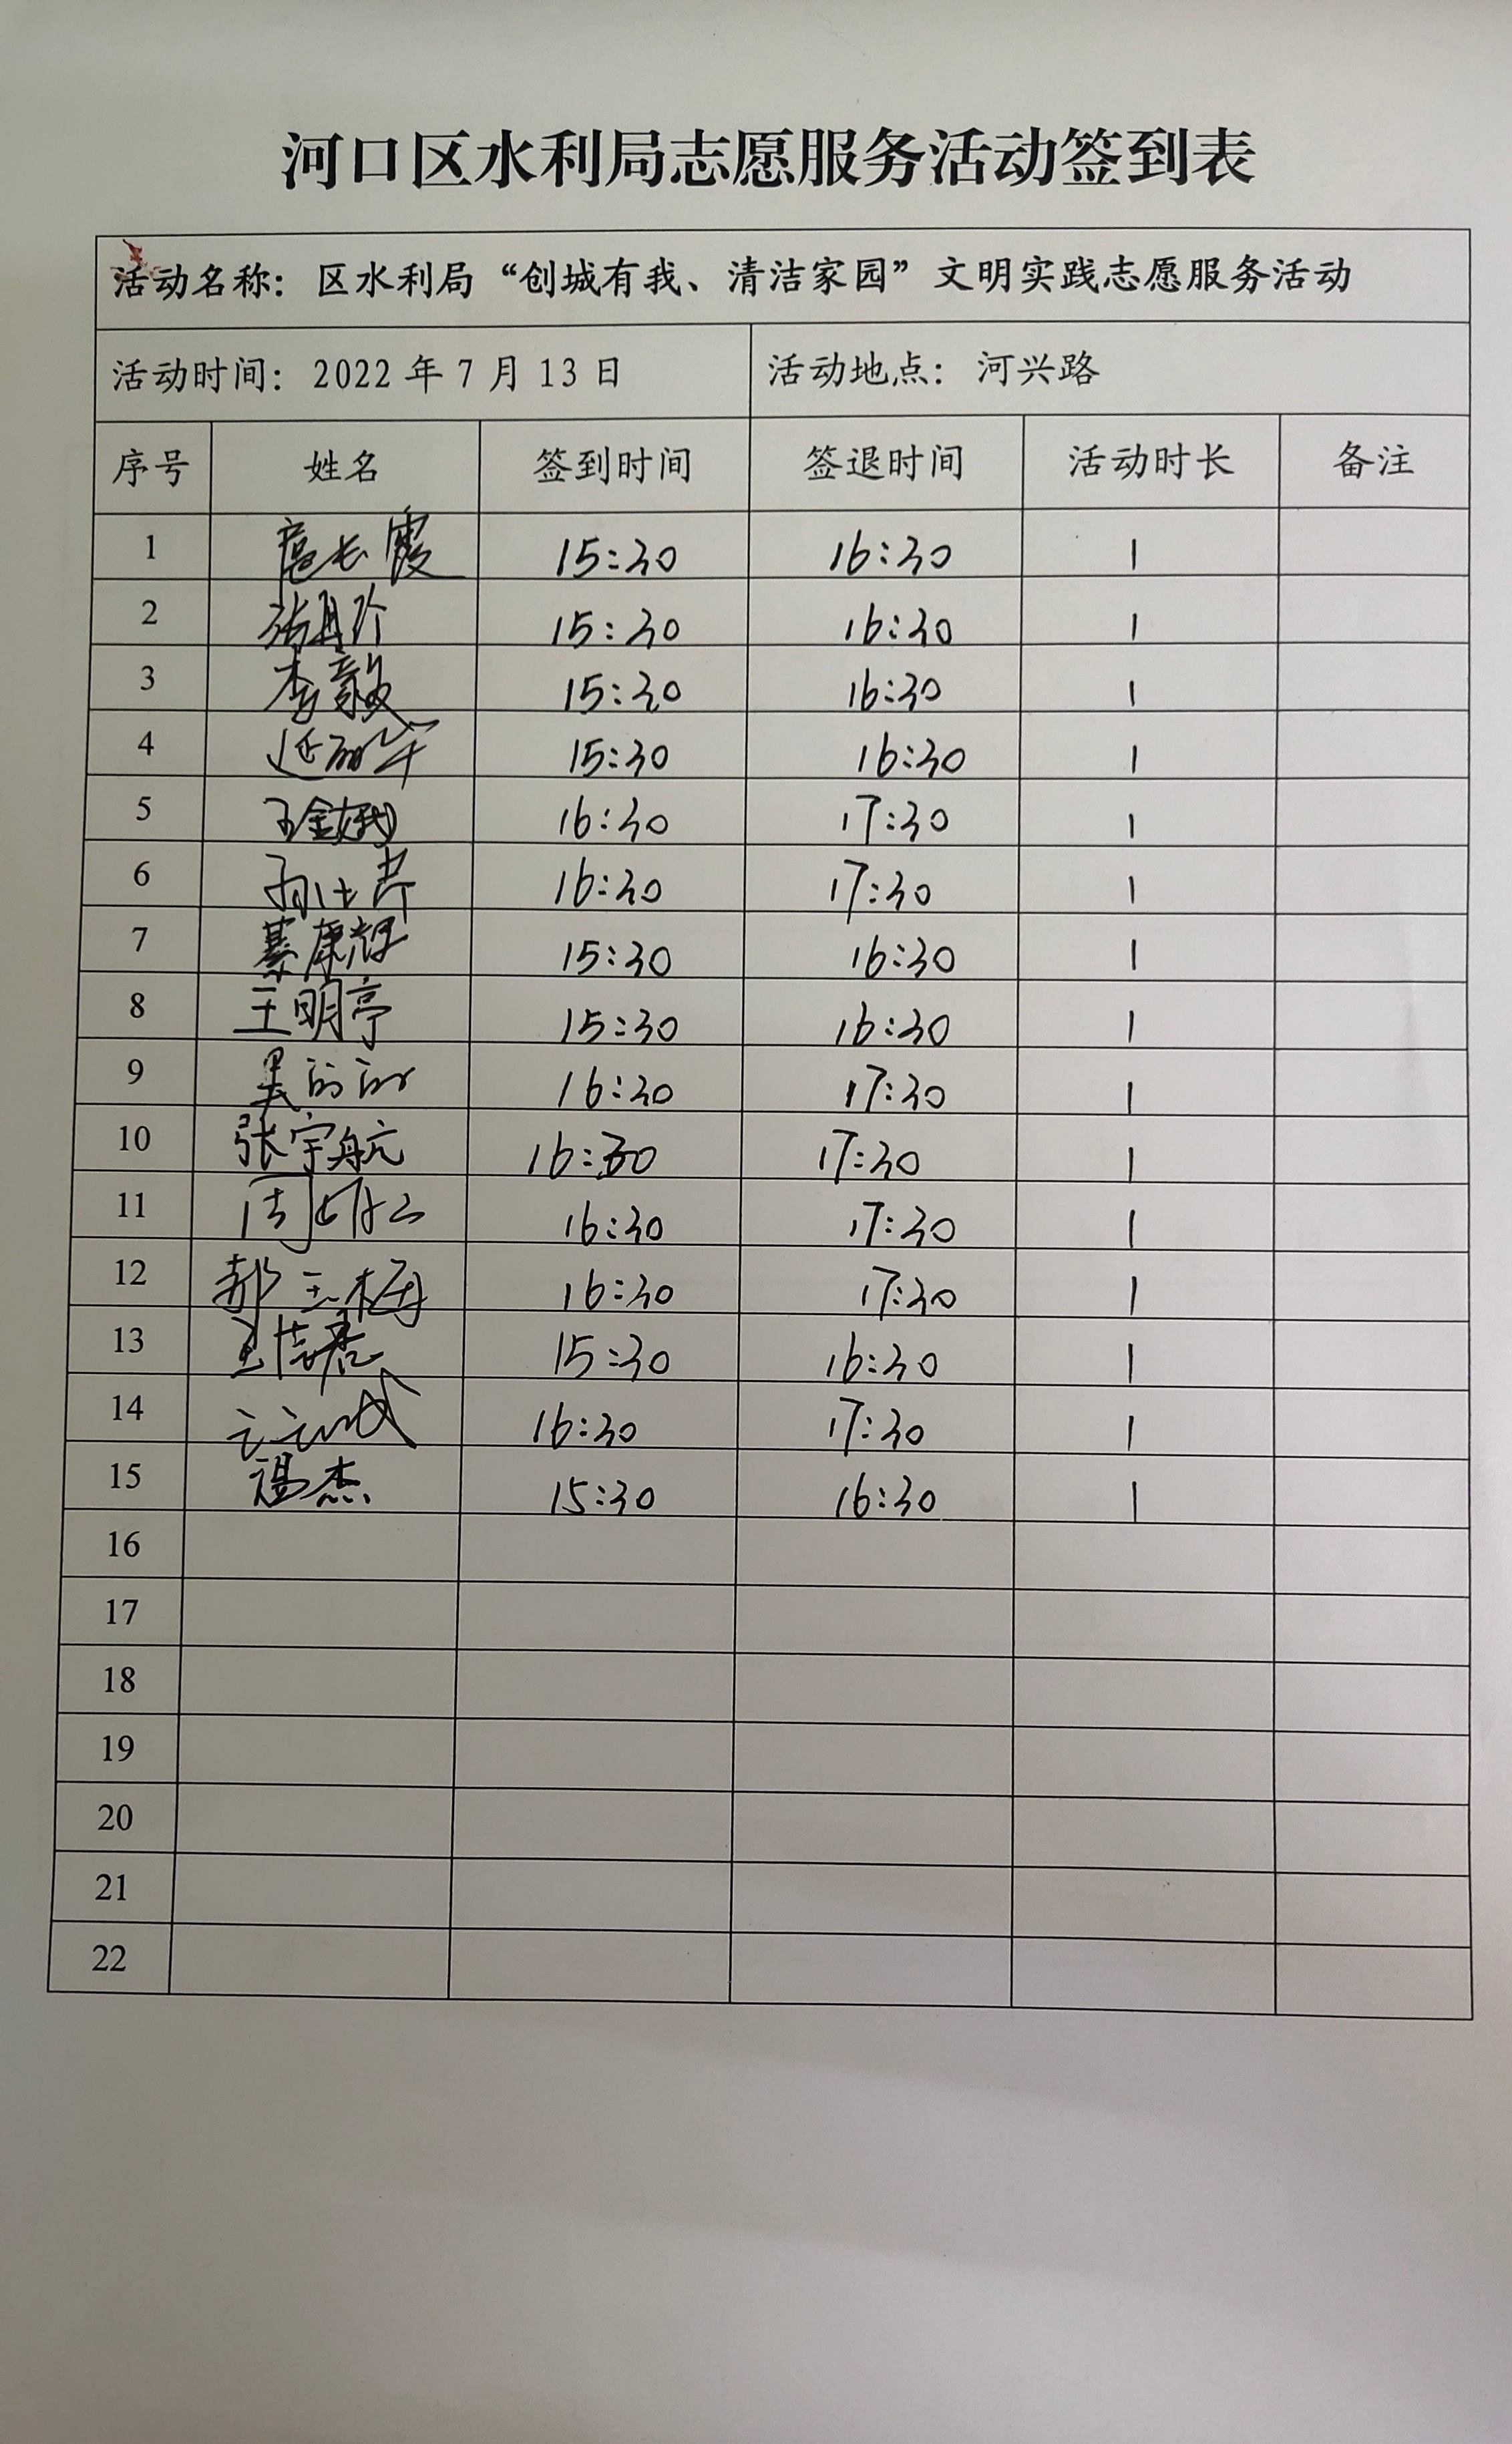 河口区水利局志愿服务活动签到表
活动名称：区水利局“创城有我、清洁家园”文明实践志愿服务活动
活动时间：2022年7月13日 活动地点：河兴路
序号 姓名 签到时间 签退时间 活动时长 备注
1 扈长霞 15:30 16:30 1
2 15:30 16:30 1
3 李毅 15:30 16:30 1
4 延丽华 15:30 16:30 1
5 16:30 17:30 1
6 16:30 17:30 1
7 綦康辉 15:30 16:30 1
8 王明亭 15:30 16:30 1
9 16:30 17:30 1
10 张宇航 16:30 17:30 1
11 周 16:30 17:30 1
12 郝玉梅 16:30 17:30 1
13 15:30 16:30 1
14 16:30 17:30 1
15 杰 15:30 16:30 1
16
17
18
19
20
21
22